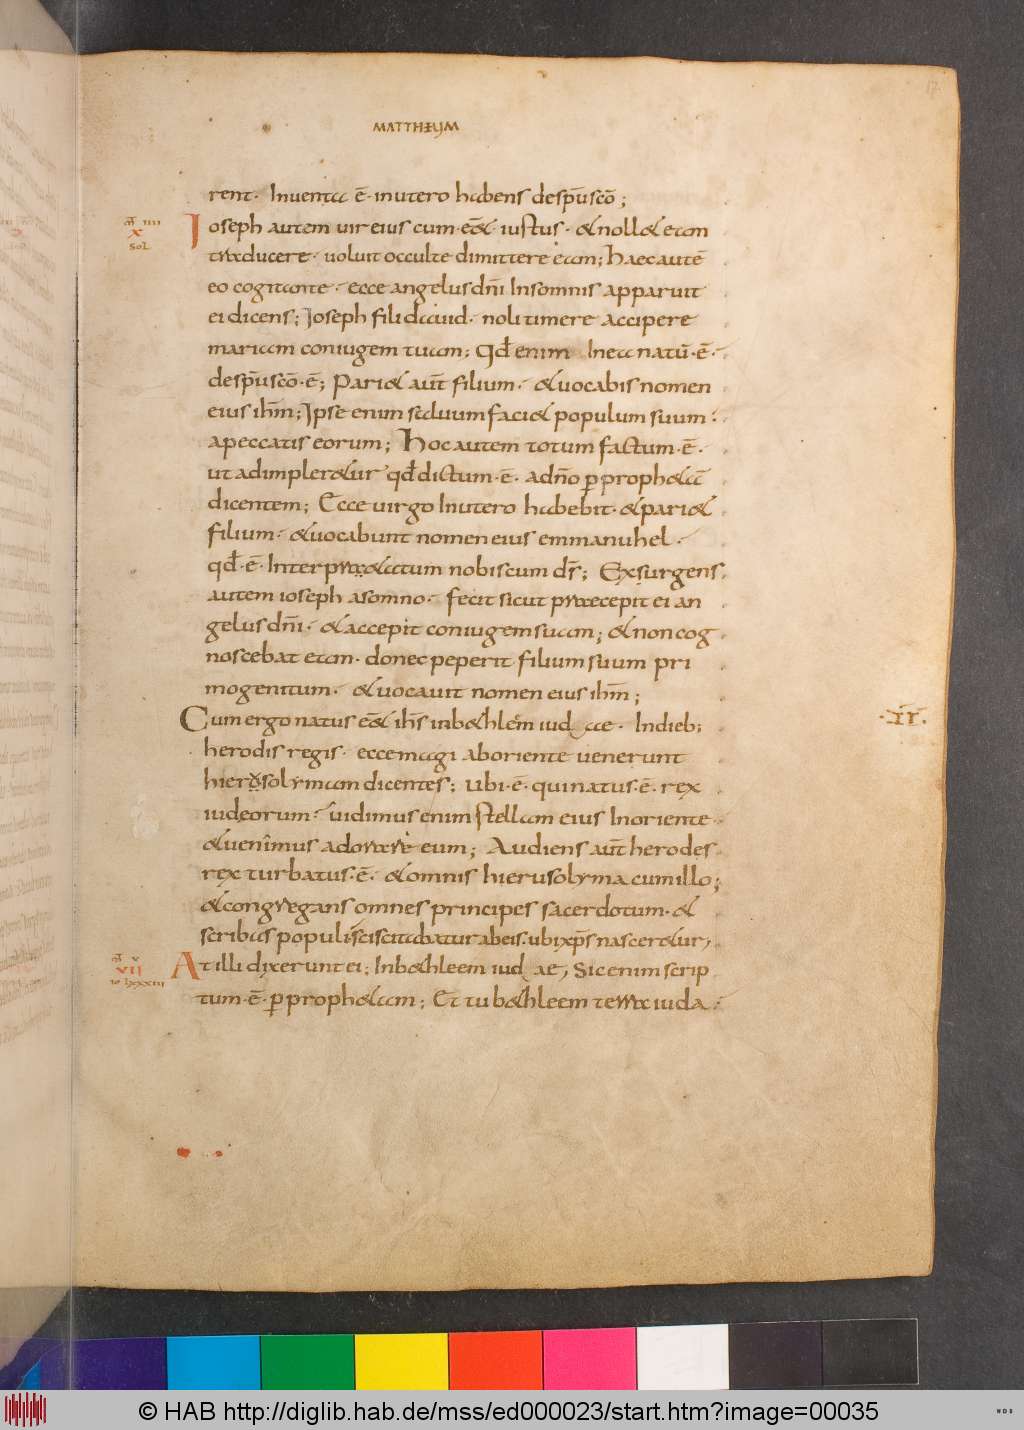 17
MATTHEUM
rent. Inuenta ē. inutero habens despū scō;
m̄ IIII
X
SOL
Ioseph autem uir eius cum eēt iustus. & noll& eam
traducere. uoluit occulte dimittere eam; Haec autē
eo cogitante. ecce angelus dn̄i Insomnis apparuit
ei dicens; Ioseph fili dauid. noli timere accipere
mariam coniugem tuam; Qd̄ enim Inea natū. ē.
despū scō. ē; Pari& aūt filium. & uocabis nomen
eius ihm̄; Ipse enim saluum faci& populum suum.
apeccatis eorum; Hoc autem totum factum. ē.
ut adimpler&ur qd̄ dictum. ē. adn̄o ꝑ proph&ā
dicentem; Ecce uirgo Inutero habebit. & pari&
filium. & uocabunt nomen eius emmanuhel.
qd̄. ē. Interpr&atum nobiscum ds̄; Exsurgens
autem ioseph asomno. fecit sicut praecepit ei an
gelus dn̄i. & accepit coniugem suam; & non cog
noscebat eam. donec peperit filium suum pri
mogenitum. & uocauit nomen eius ihm̄;
Cum ergo natus eēt ihs̄ inb&hlēm iudęae. Indieb;
.II.
herodis regis. ecce magi aboriente uenerunt
hierosolymam dicentes; Ubi. ē. qui natus. ē. rex
iudeorum? uidimus enim stellam eius Inoriente
& uenimus adorare eum; Audiens aūt herodes
rex turbatus. ē. & omnis hierusolyma cum illo;
& congregans omnes principes sacerdotum. &
scribas populi sciscitabatur abeis. ubi xp̄s nascer&ur,
m̄ V
VII
IO LXXXIII
At illi dixerunt ei; Inb&hleem iudae, Sic enim scrip
tum. ē. ꝑ proph&am; Et tu b&hleem terra iuda
© HAB http://diglib.hab.de/mss/ed000023/start.htm?image=00035
WDB